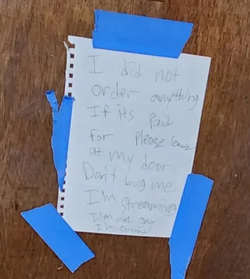 I did not
order anything
If its Paid
For Please leave
at my door
Don't bug me
I'm streaming
I'm not
I'm